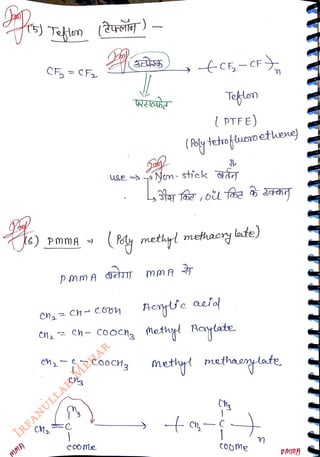 (5) Teflon (टेफ्लॉन) —
CF2 = CF2 उत्प्रेरक → -( CF2 - CF )-n
परसल्फेट
Teflon
(PTFE)
(Poly tetrofluoroethene)
use → → Non-stick बर्तन
→ गैस किट, Oil किट के ढक्कन
(6) PMMA ⇒ (Poly methyl methacrylate)
PMMA बनेगा MMA से
CH2 = CH - COOH Acrylic acid
CH2 = CH - COOCH3 Methyl Acrylate
CH2 - C - COOCH3 Methyl methacrylate
CH3
CH3 CH3
CH2 = C → -( CH2 - C )-n
COOMe COOMe
MMA PMMA
IRFANULLAH MEHAR